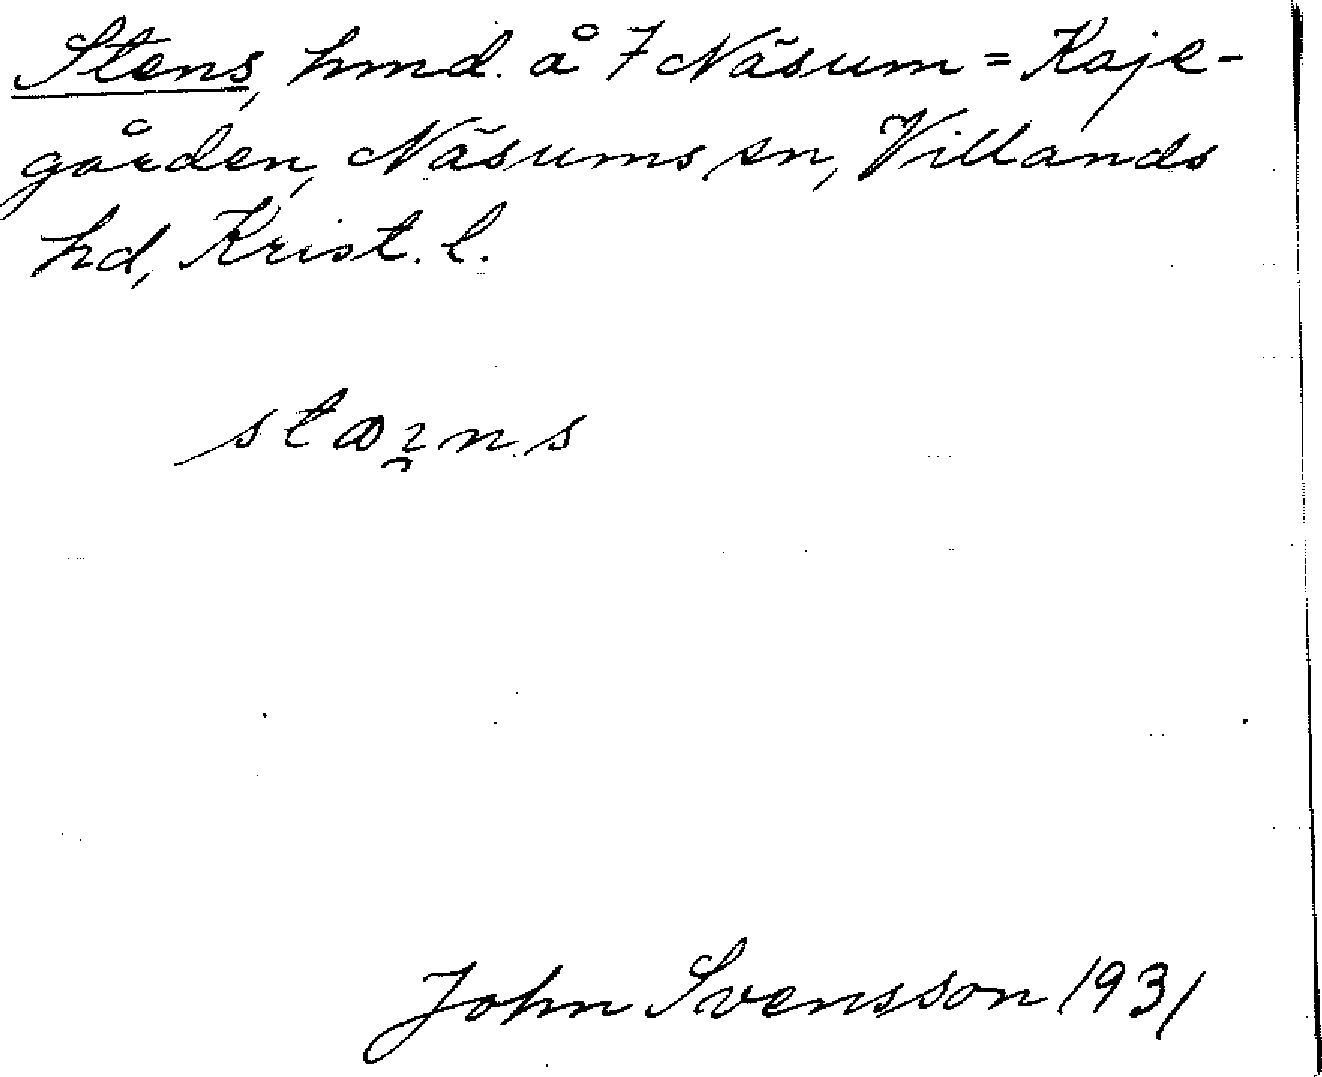 Stens, hmd. å 7 Näsum = Kaje-
gården, Näsums sn, Villands
hd, Krist. l.
John Svensson 1931